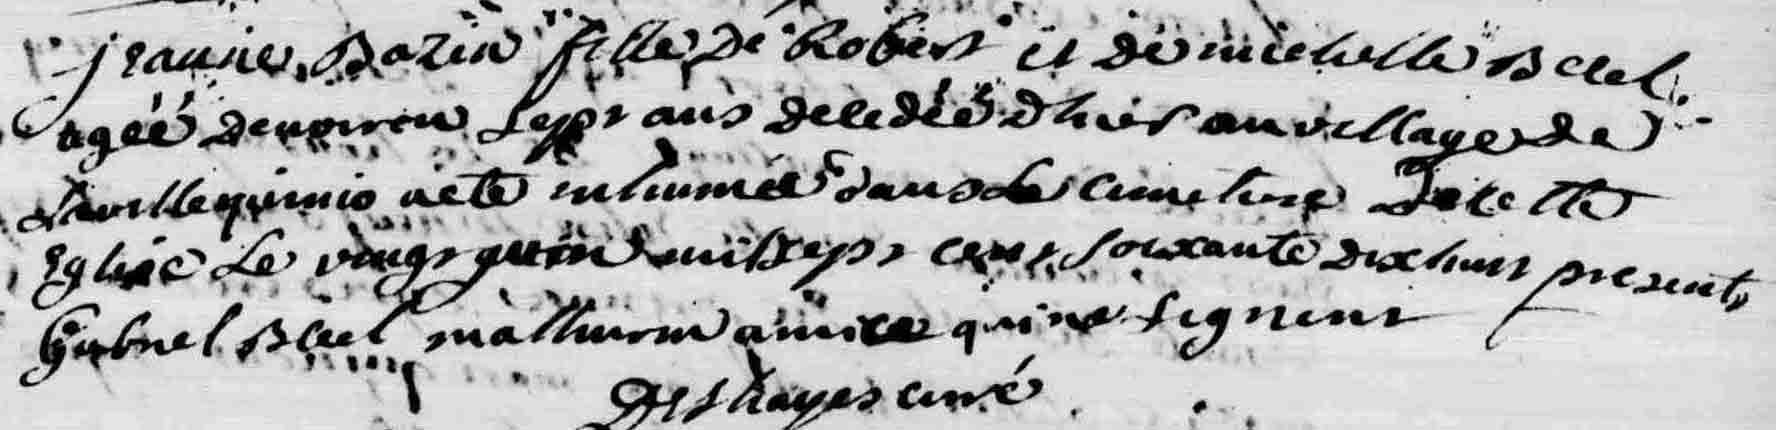 Jeanne Bazin fille de Robert et de michelle Bleel
agéé denviron Sept ans decedéé d'hier au village de
Lavillequinio a eté inhuméé dans Le Cimetiere De cette
Eglise Le vingt juin mil Sept cent Soixante dix huit presents
Gabriel Bleel mathurin amice qui ne Signent
Deshayes curé